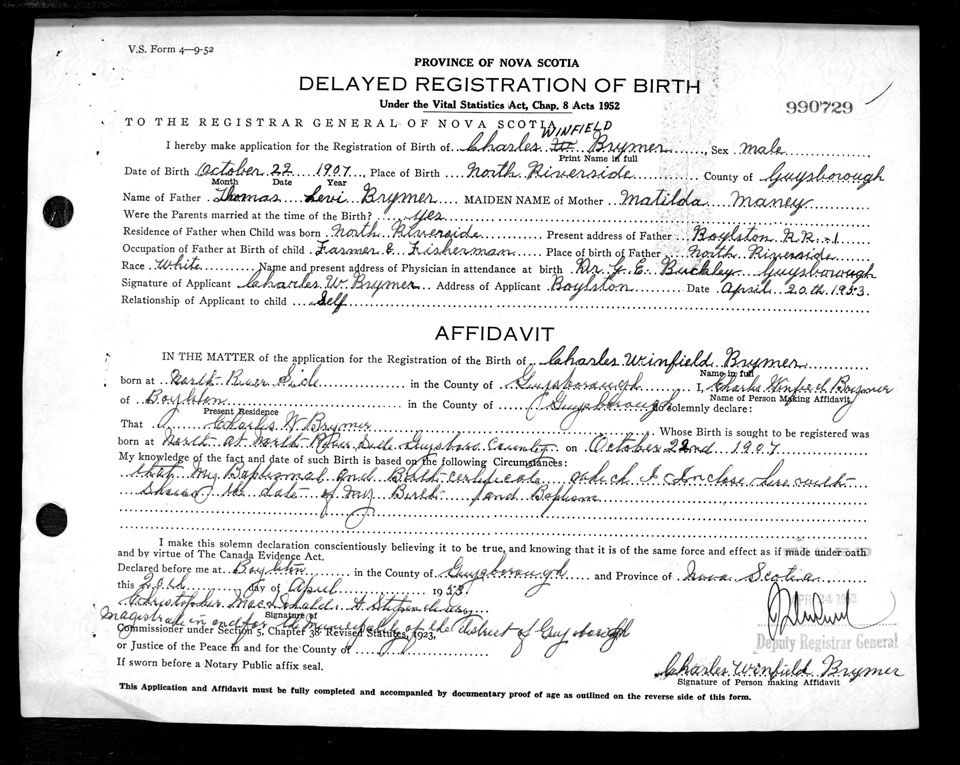 V.S. Form 4—9-52
PROVINCE OF NOVA SCOTIA
DELAYED REGISTRATION OF BIRTH
Under the Vital Statistics Act, Chap. 8 Acts 1952
990729
TO THE REGISTRAR GENERAL OF NOVA SCOTIA
WINFIELD
I hereby make application for the Registration of Birth of Charles W. Brymer, Sex male
Print Name in full
Date of Birth October 22 1907, Place of Birth North Riverside County of Guysborough
Month Date Year
Name of Father Thomas Levi Brymer MAIDEN NAME of Mother Matilda Maney
Were the Parents married at the time of the Birth? yes
Residence of Father when Child was born North Riverside Present address of Father Boylston R.R.-1
Occupation of Father at Birth of child Farmer & Fisherman Place of birth of Father North Riverside
Race White Name and present address of Physician in attendance at birth Dr. G. E. Buckley Guysborough
Signature of Applicant Charles W. Brymer Address of Applicant Boylston Date April 20th 1953.
Relationship of Applicant to child Self
AFFIDAVIT
IN THE MATTER of the application for the Registration of the Birth of Charles Winfield Brymer
Name in full
born at North River Side in the County of Guysborough I, Charles Winfield Brymer
Name of Person Making Affidavit
of Boylston in the County of Guysborough do solemnly declare:
Present Residence
That Charles W Brymer Whose Birth is sought to be registered was
born at North at North River Side Guysboro County on October 22nd 1907
My knowledge of the fact and date of such Birth is based on the following Circumstances:
that My Baptismal and Birth certificate which I Inclose here with
Shows the date of My Birth and Baptism
I make this solemn declaration conscientiously believing it to be true, and knowing that it is of the same force and effect as if made under oath
and by virtue of The Canada Evidence Act.
Declared before me at Boylston in the County of Guysborough and Province of Nova Scotia
this day of April 1953.
Christopher MacDonald A Stipendiary
Signature of
Magistrate in and for the Municipality of the district of Guysborough
Commissioner under Section 5, Chapter 38 Revised Statutes, 1923,
or Justice of the Peace in and for the County of
Deputy Registrar General
If sworn before a Notary Public affix seal.
Charles Winfield Brymer
Signature of Person making Affidavit
This Application and Affidavit must be fully completed and accompanied by documentary proof of age as outlined on the reverse side of this form.